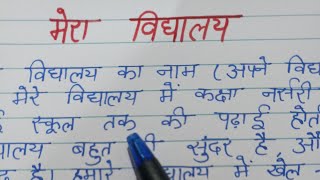 मेरा विद्यालय
विद्यालय का नाम (अपने विद्या
मेरे विद्यालय में कक्षा नर्सरी
स्कूल तक की पढ़ाई होती
बहुत सुंदर है
है। हमारे में खेल -